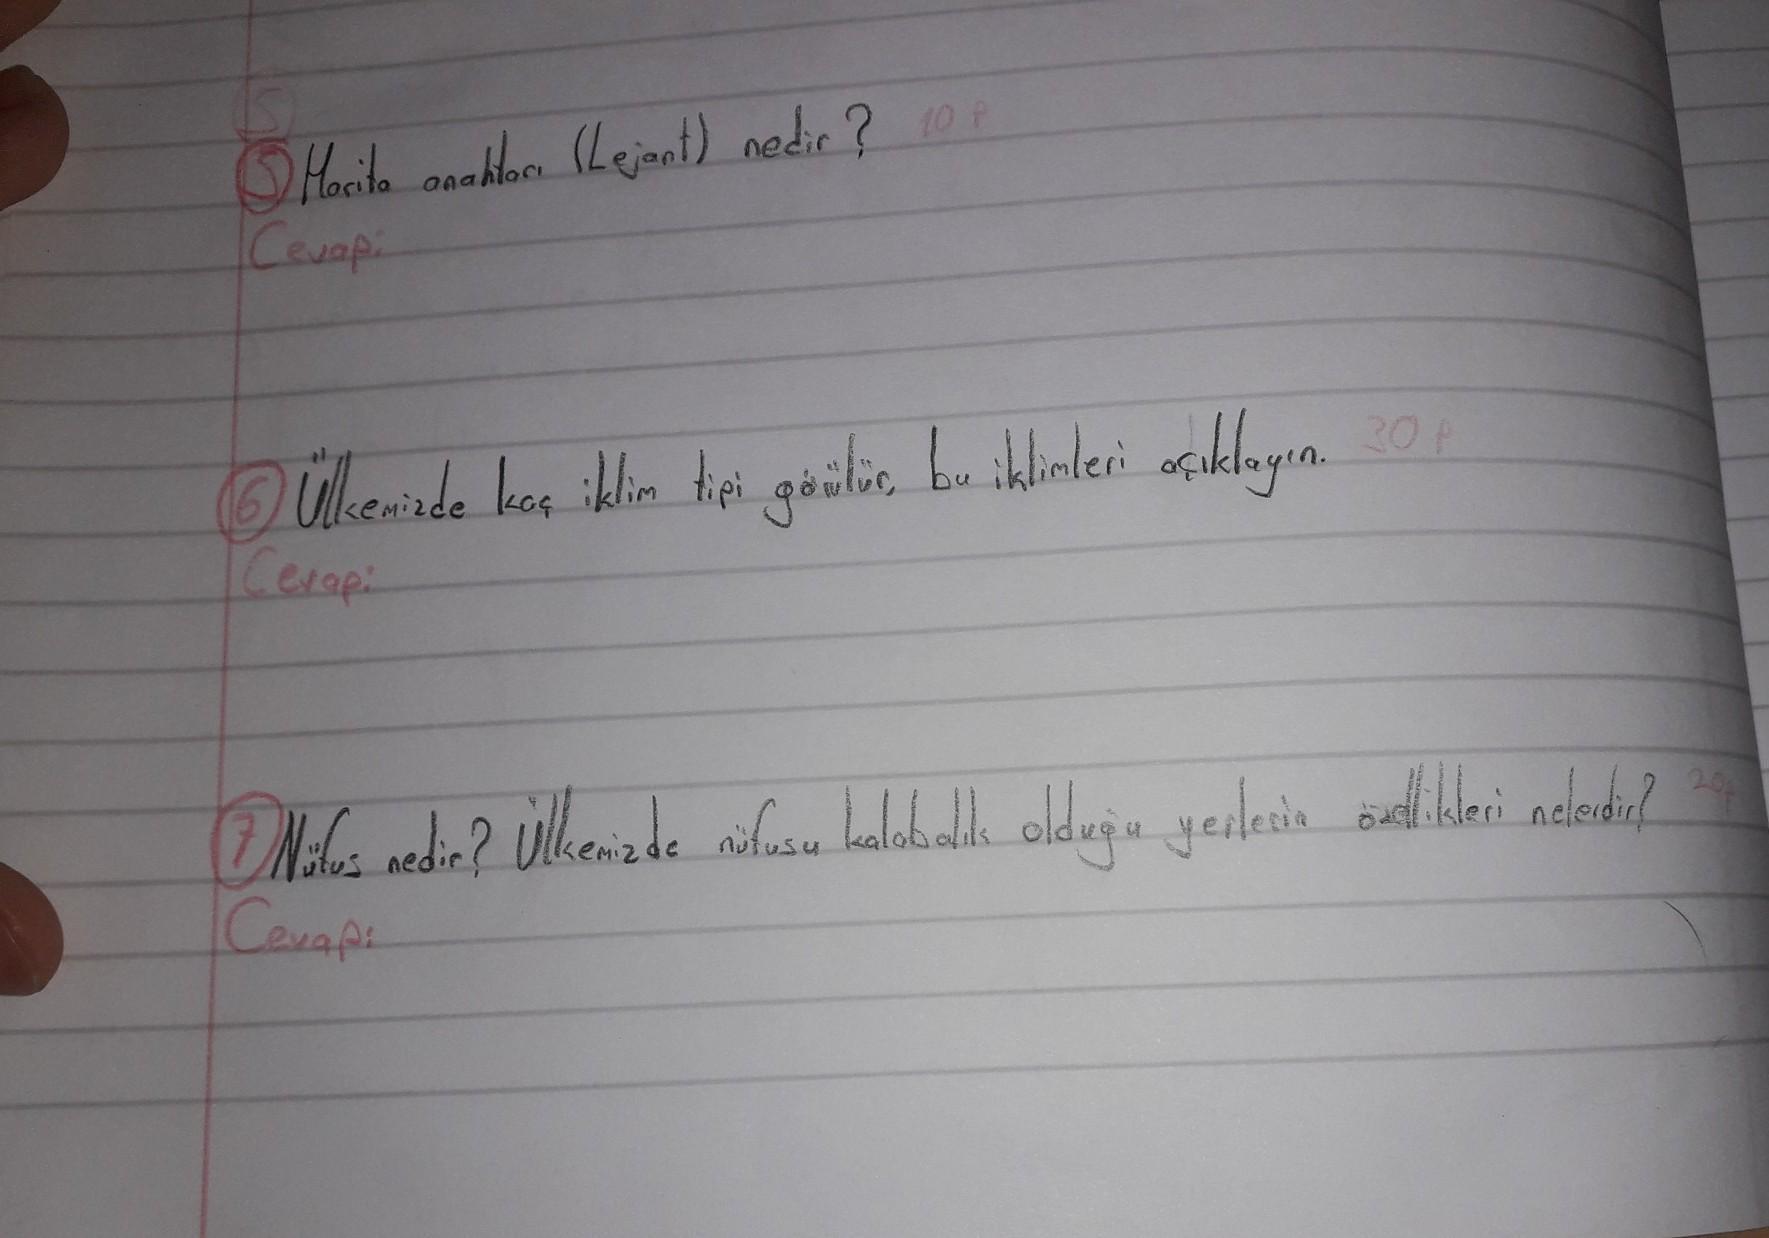 5
5 Harita anahtarı (Lejant) nedir? 10 P
Cevap:
6 Ülkemizde kaç iklim tipi görülür, bu iklimleri açıklayın. 30 P
Cevap:
7 Nüfus nedir? Ülkemizde nüfusu kalabalık olduğu yerlerin özellikleri nelerdir? 20p
Cevap: